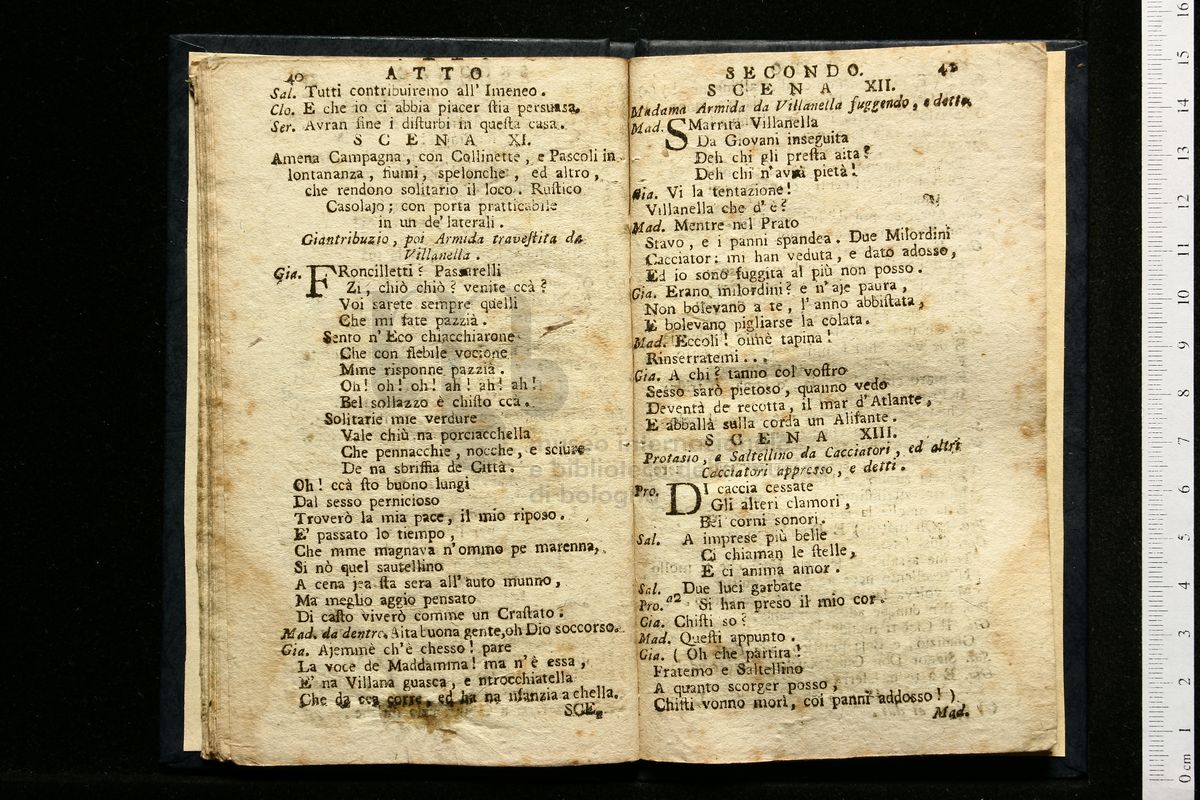 40
ATTO
Sal. Tutti contribuiremo all' Imeneo.
Clo. E che io ci abbia piacer ſtia persuasa.
Ser. Avran fine i diſturbi in queſta casa.
SCENA XI.
Amena Campagna, con Collinette, e Pascoli in
lontananza, fiumi, spelonche, ed altro,
che rendono solitario il loco. Ruſtico
Casolajo; con porta pratticabile
in un de' laterali.
Giantribuzio, poi Armida traveſtita da
Villanella.
Gia. FRoncilletti? Passarelli
Zi, chiò chiò? venite ccà?
Voi sarete sempre quelli
Che mi fate pazzia.
Sento n' Eco chiacchiarone
Che con flebile vocione
Mme risponne pazzia.
Oh! oh! oh! ah! ah! ah!
Bel sollazzo è chiſto ccà.
Solitarie mie verdure
Vale chiù na porciacchella
Che pennacchie, nocche, e sciure
De na sbriffia de Città.
Oh! ccà ſto buono lungi
Dal sesso pernicioso
Troverò la mia pace, il mio riposo.
E' passato lo tiempo,
Che mme magnava n'ommo pe marenna,
Si nò quel sautellino
A cena jea ſta sera all'auto munno,
Ma meglio aggio pensato
Di caſto viverò comme un Craſtato.
Mad. da dentro. Aita buona gente, oh Dio soccorso.
Gia. Ajemmè ch'è chesso! pare
La voce de Maddamma! ma n'è essa,
E' na Villana guasca, e ntrocchiatella
Che da cca corre, ed ha na nfanzia a chella.
SCE-
SECONDO. 41
SCENA XII.
Madama Armida da Villanella fuggendo, e detto.
Mad. SMarrita Villanella
Da Giovani inseguita
Deh chi gli preſta aita?
Deh chi n'avrà pietà!
Gia. Vi la tentazione!
Villanella che d'è?
Mad. Mentre nel Prato
Stavo, e i panni spandea. Due Milordini
Cacciator: mi han veduta, e dato adosso,
Ed io sono fuggita al più non posso.
Gia. Erano milordini? e n'aje paura,
Non bolevano a te, l'anno abbiſtata,
E bolevano pigliarse la colata.
Mad. Eccoli! oimè tapina!
Rinserratemi...
Gia. A chi? tanno col voſtro
Sesso sarò pietoso, quanno vedo
Deventà de recotta, il mar d'Atlante,
E abballà sulla corda un Alifante.
SCENA XIII.
Protasio, e Saltellino da Cacciatori, ed altri
Cacciatori appresso, e detti.
Pro. DI caccia cessate
Gli alteri clamori,
Bei corni sonori.
Sal. A imprese più belle
Ci chiaman le ſtelle,
E ci anima amor.
Sal. Due luci garbate
Pro. a2 Si han preso il mio cor.
Gia. Chiſti so?
Mad. Queſti appunto.
Gia. (Oh che partita!
Fratemo e Saltellino
A quanto scorger posso,
Chiſti vonno morì, coi panni addosso!)
Mad.
museo internazionale
e biblioteca de
di bologna